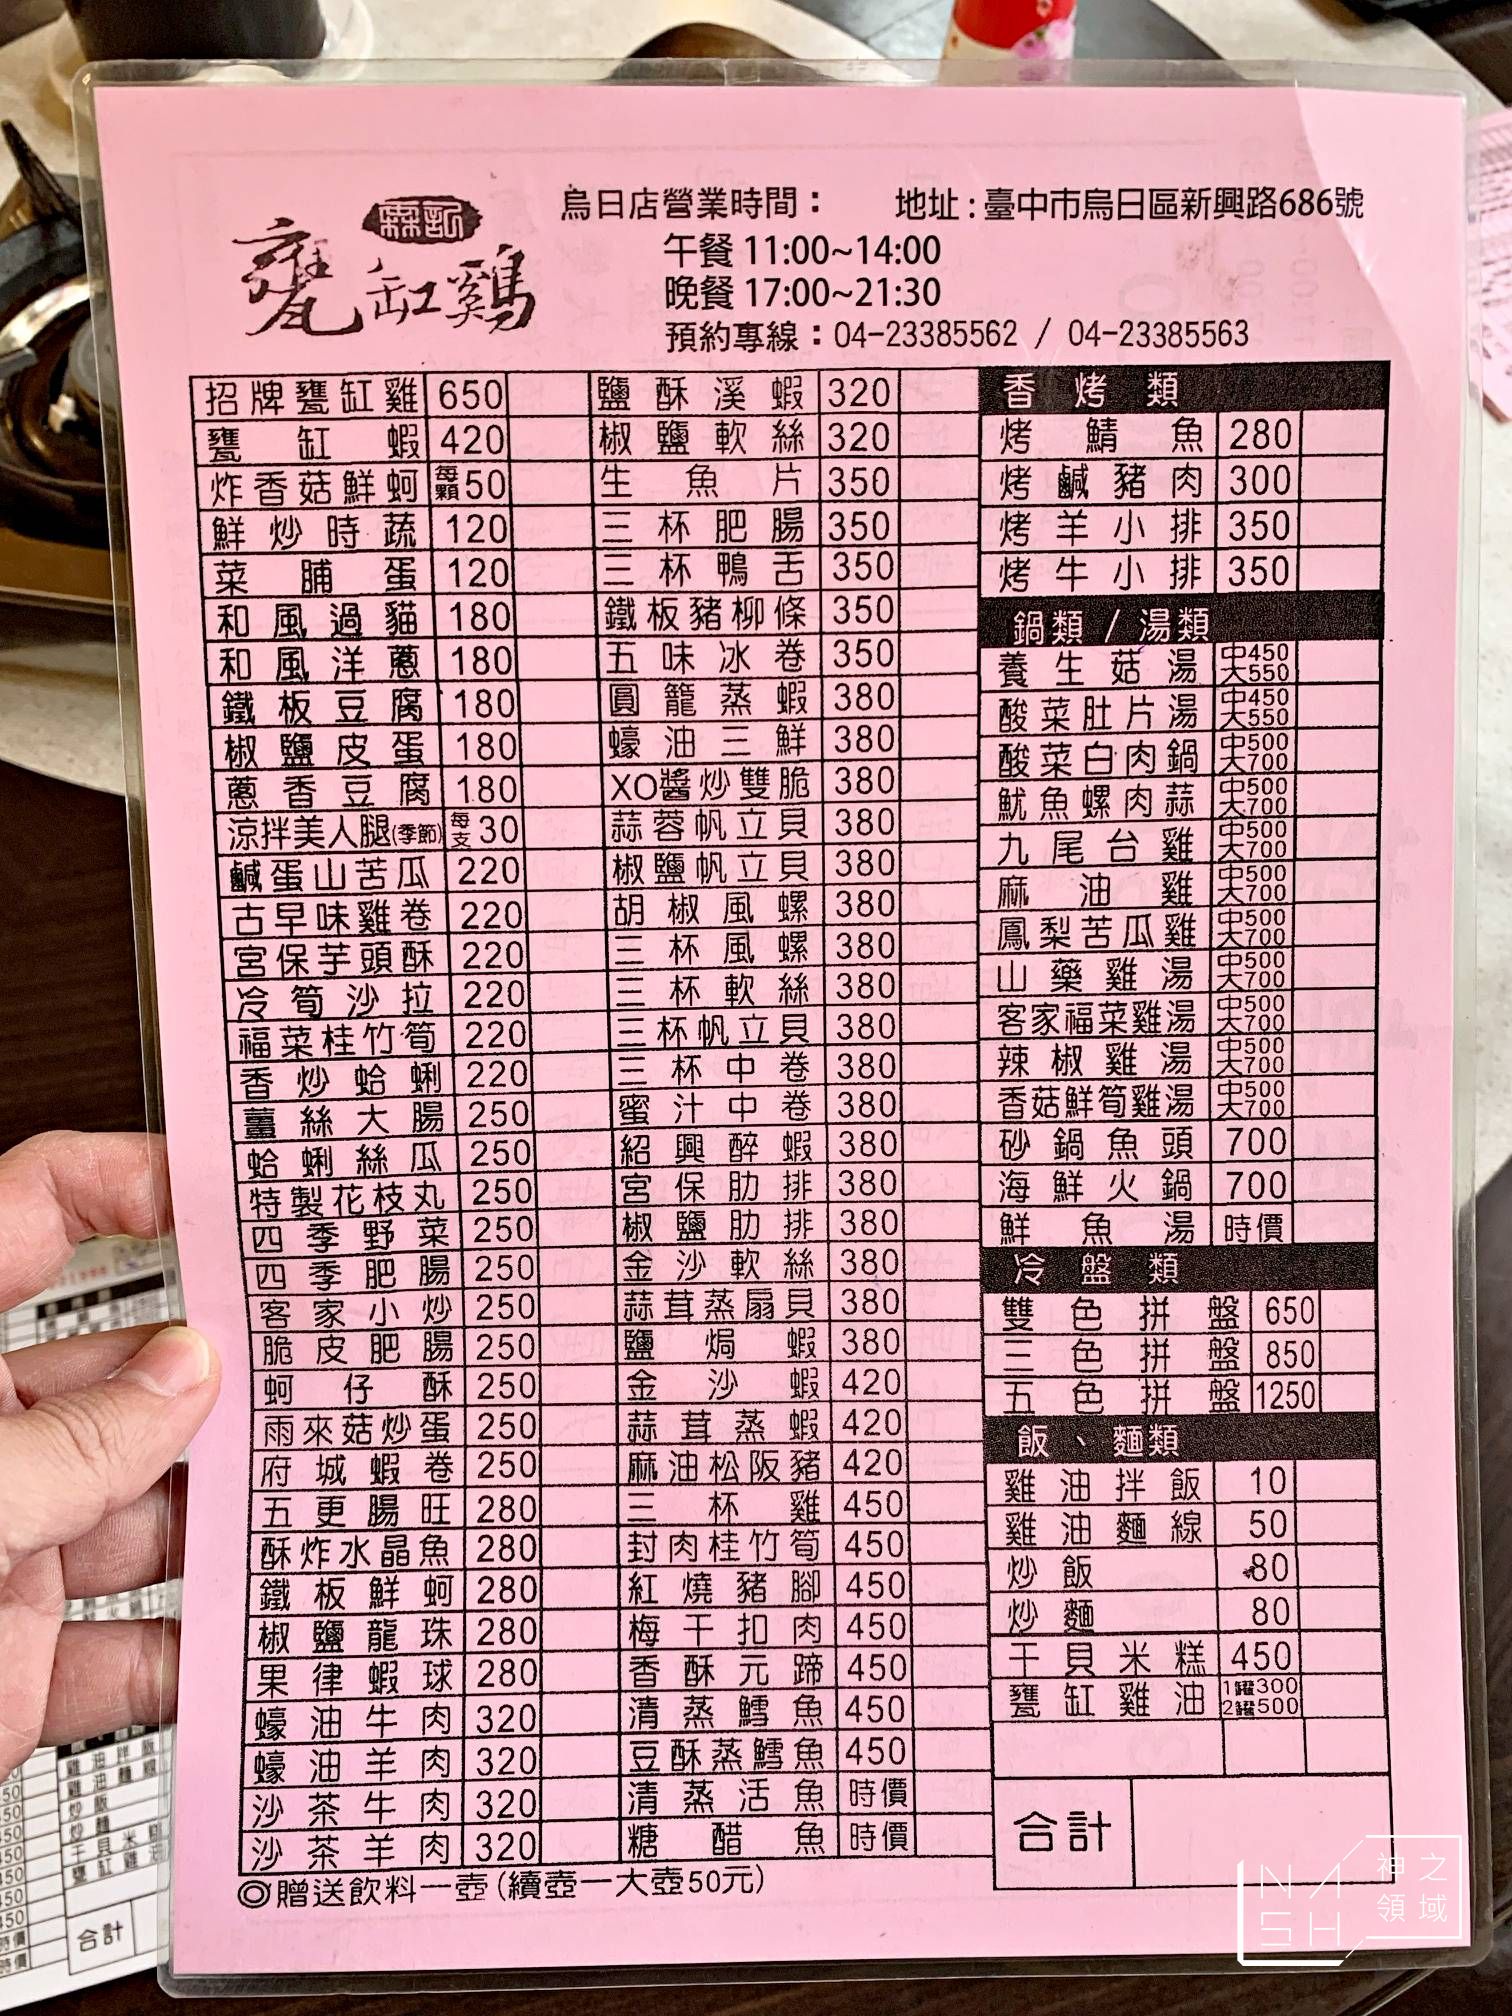 甕缸雞
烏日店營業時間：
地址：臺中市烏日區新興路686號
午餐 11:00~14:00
晚餐 17:00~21:30
預約專線：04-23385562 / 04-23385563
招牌甕缸雞 650
甕缸蝦 420
炸香菇鮮蚵 每顆50
鮮炒時蔬 120
菜脯蛋 120
和風過貓 180
和風洋蔥 180
鐵板豆腐 180
椒鹽皮蛋 180
蔥香豆腐 180
涼拌美人腿(季節) 每支30
鹹蛋山苦瓜 220
古早味雞卷 220
宮保芋頭酥 220
冷筍沙拉 220
福菜桂竹筍 220
香炒蛤蜊 220
薑絲大腸 250
蛤蜊絲瓜 250
特製花枝丸 250
四季野菜 250
四季肥腸 250
客家小炒 250
脆皮肥腸 250
蚵仔酥 250
雨來菇炒蛋 250
府城蝦卷 250
五更腸旺 280
酥炸水晶魚 280
鐵板鮮蚵 280
椒鹽龍珠 280
果律蝦球 280
蠔油牛肉 320
蠔油羊肉 320
沙茶牛肉 320
沙茶羊肉 320
◎贈送飲料一壺(續壺一大壺50元)
鹽酥溪蝦 320
椒鹽軟絲 320
生魚片 350
三杯肥腸 350
三杯鴨舌 350
鐵板豬柳條 350
五味冰卷 350
圓籠蒸蝦 380
蠔油三鮮 380
XO醬炒雙脆 380
蒜蓉帆立貝 380
椒鹽帆立貝 380
胡椒風螺 380
三杯風螺 380
三杯軟絲 380
三杯帆立貝 380
三杯中卷 380
蜜汁中卷 380
紹興醉蝦 380
宮保肋排 380
椒鹽肋排 380
金沙軟絲 380
蒜茸蒸扇貝 380
鹽焗蝦 380
金沙蝦 420
蒜茸蒸蝦 420
麻油松阪豬 420
三杯雞 450
封肉桂竹筍 450
紅燒豬腳 450
梅干扣肉 450
香酥元蹄 450
清蒸鱈魚 450
豆酥蒸鱈魚 450
清蒸活魚 時價
糖醋魚 時價
香烤類
烤鯖魚 280
烤鹹豬肉 300
烤羊小排 350
烤牛小排 350
鍋類 / 湯類
養生菇湯 中450 大550
酸菜肚片湯 中450 大550
酸菜白肉鍋 中500 大700
魷魚螺肉蒜 中500 大700
九尾台雞 中500 大700
麻油雞 中500 大700
鳳梨苦瓜雞 中500 大700
山藥雞湯 中500 大700
客家福菜雞湯 中500 大700
辣椒雞湯 中500 大700
香菇鮮筍雞湯 中500 大700
砂鍋魚頭 700
海鮮火鍋 700
鮮魚湯 時價
冷盤類
雙色拼盤 650
三色拼盤 850
五色拼盤 1250
飯、麵類
雞油拌飯 10
雞油麵線 50
炒飯 80
炒麵 80
干貝米糕 450
甕缸雞油 1罐300 2罐500
合計
NASH 神之領域